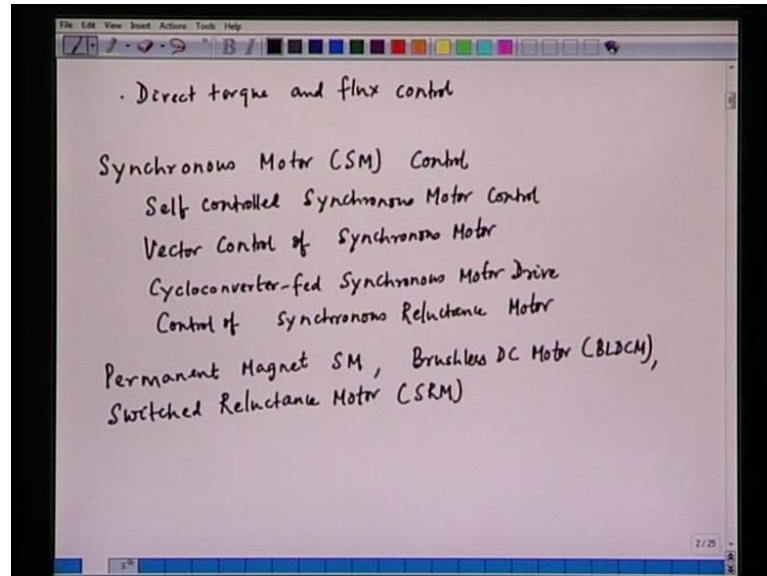 File Edit View Insert Actions Tools Help
B I
. Direct torque and flux control
Synchronous Motor (SM) Control
Self controlled Synchronous Motor Control
Vector Control of Synchronous Motor
Cycloconverter-fed Synchronous Motor Drive
Control of Synchronous Reluctance Motor
Permanent Magnet SM, Brushless DC Motor (BLDCM),
Switched Reluctance Motor (SRM)
2/25